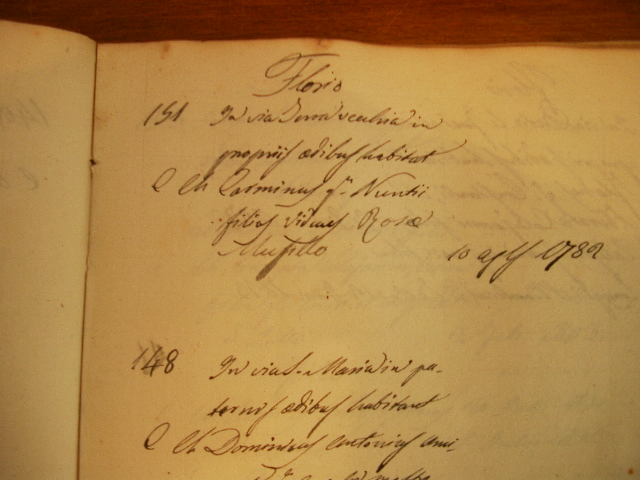 Florio
151 In via Terra vecchia in
propriis ædibus habitat
C Ch Carminus qm. Nuntii
filius viduus Rosæ
Musillo 10 1782
148 In via S. Maria in pa-
ternis ædibus habitant
C Ch Dominicus Antonius